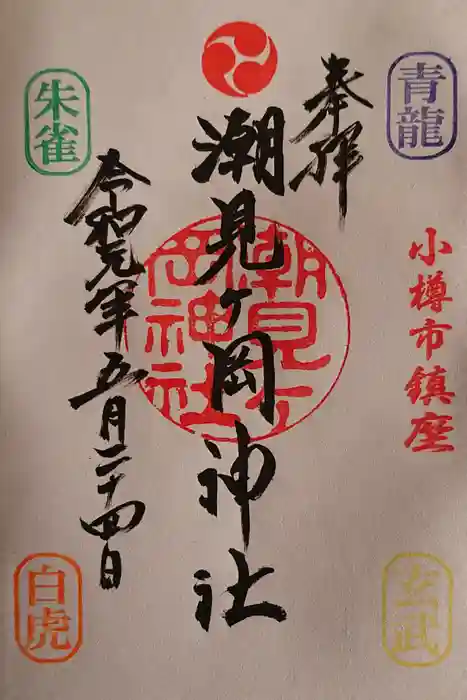 青龍
小樽市鎮座
玄武
奉拝
潮見ヶ岡神社
潮見ヶ
岡神社
朱雀
令和元年五月二十四日
白虎